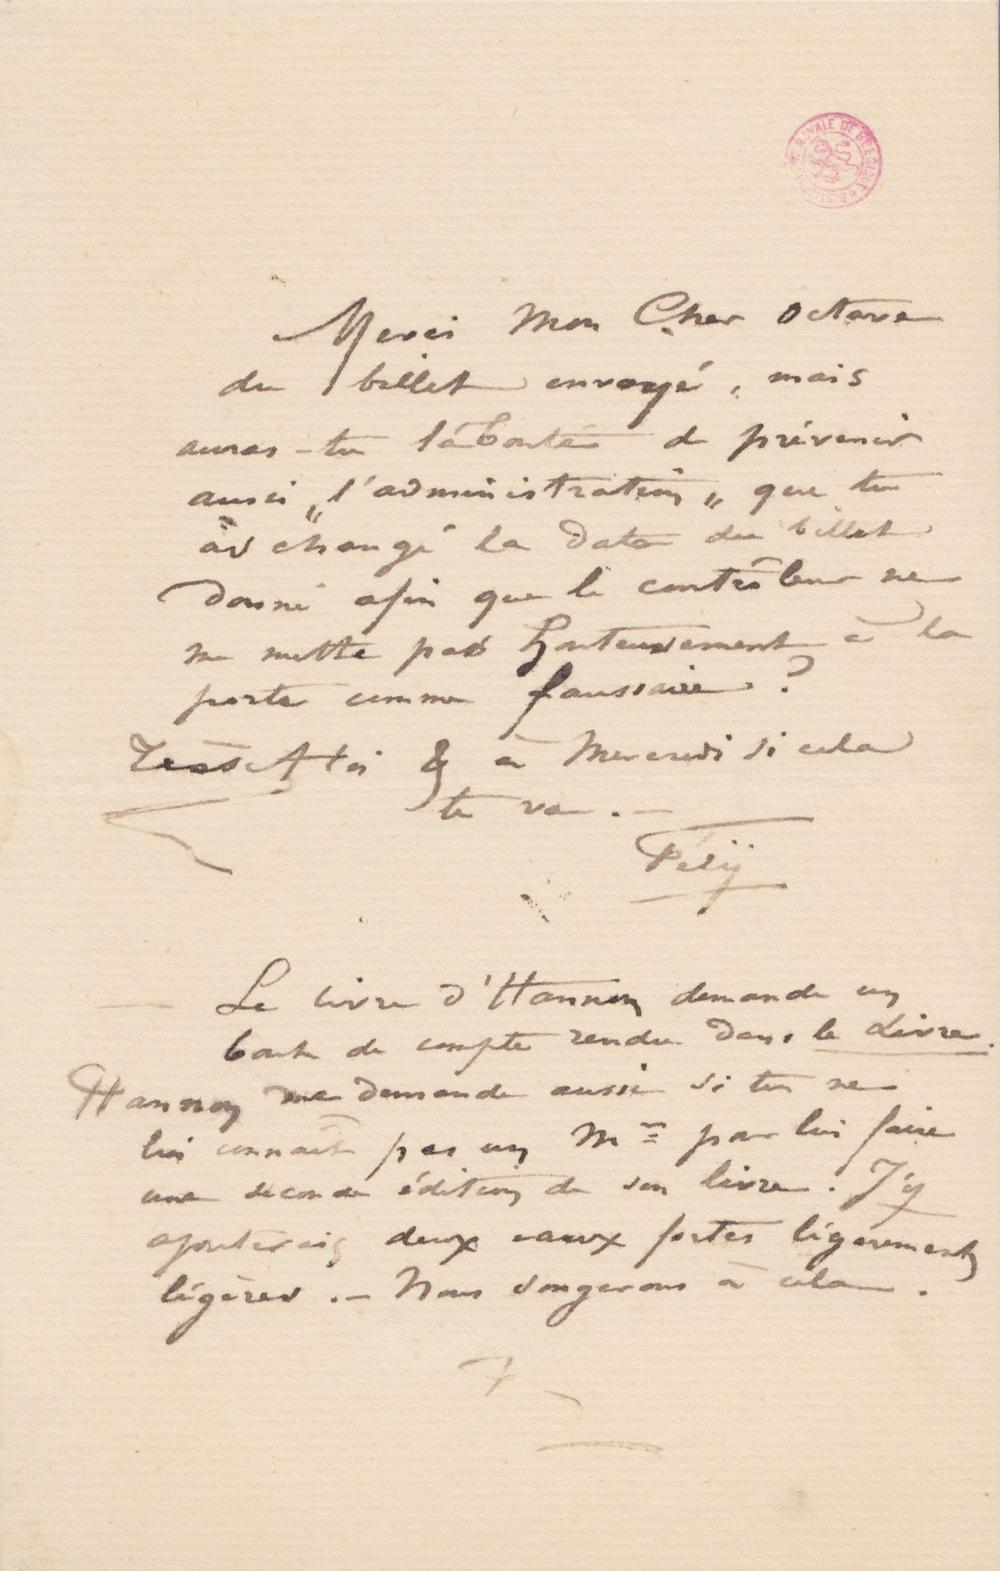 Merci Mon Cher Octave
du billet envoyé, mais
auras-tu la bonté de prévenir
aussi „l'administration„ que tu
as changé la date du billet
donné afin que le contrôleur ne
me mette pas honteusement à la
porte comme faussaire ?
A toi & à Mercredi si cela
te va . —
Fély
— Le livre d'Hannon demande un
bout de compte rendu dans le Livre.
Hannon me demande aussi si tu ne
lui connait pas un pour lui faire
une seconde édition de son livre. J'y
ajouterais deux eaux fortes légèrement
légères . — Nous songerons à cela .